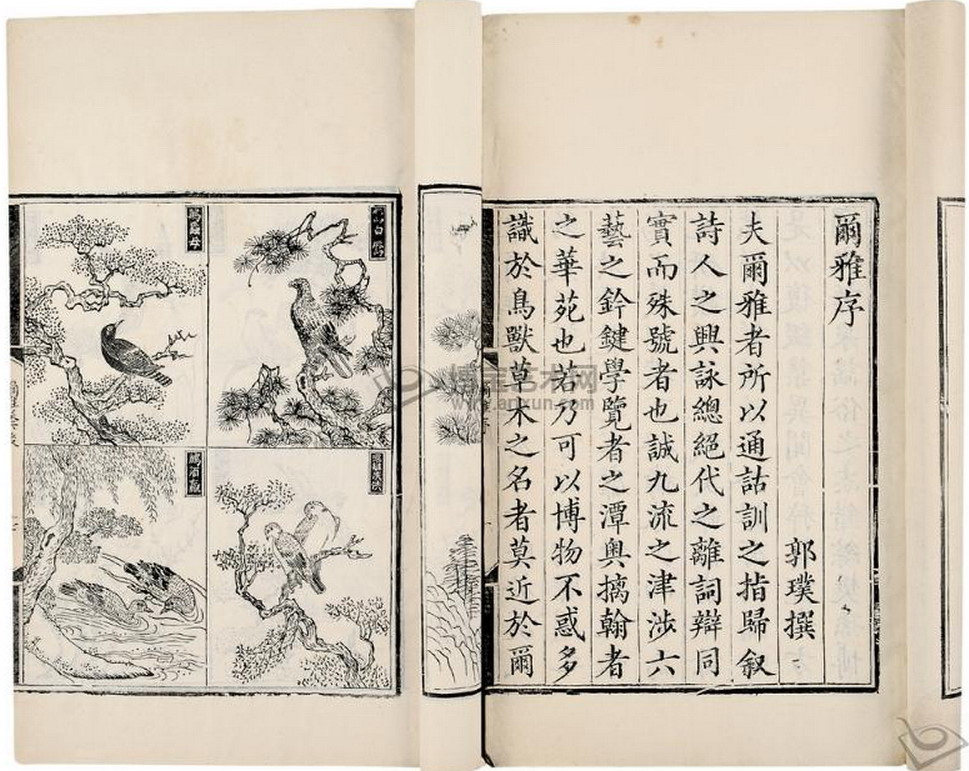 爾雅序
郭璞撰
夫爾雅者所以通詁訓之指歸叙
詩人之興詠總絕代之離詞辯同
實而殊號者也誠九流之津涉六
藝之鈐鍵學覽者之潭奧摛翰者
之華苑也若乃可以博物不惑多
識於鳥獸草木之名者莫近於爾
博宝艺术网
www.anxun.com